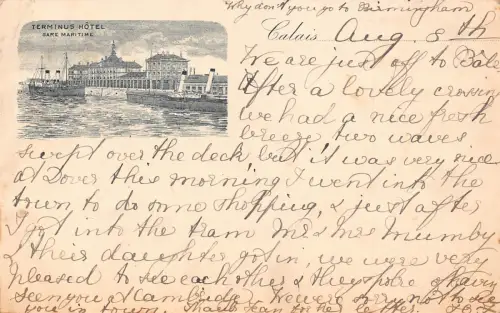 Why don't you go to Birmingham
TERMINUS HÔTEL
GARE MARITIME
Calais Aug. 8th
We are just off to Bâle
after a lovely crossing
we had a nice fresh
breeze two waves
swept over the deck but it was very nice
at Dover this morning I went into the
town to do some shopping, & just after
I got into the tram Mr & Mrs Mumby
& their daughter got in, we were very
pleased to see each other & they spoke of having
seen you at Cambridge. We were sorry not to see
you in town. Thank Jean for her letter.